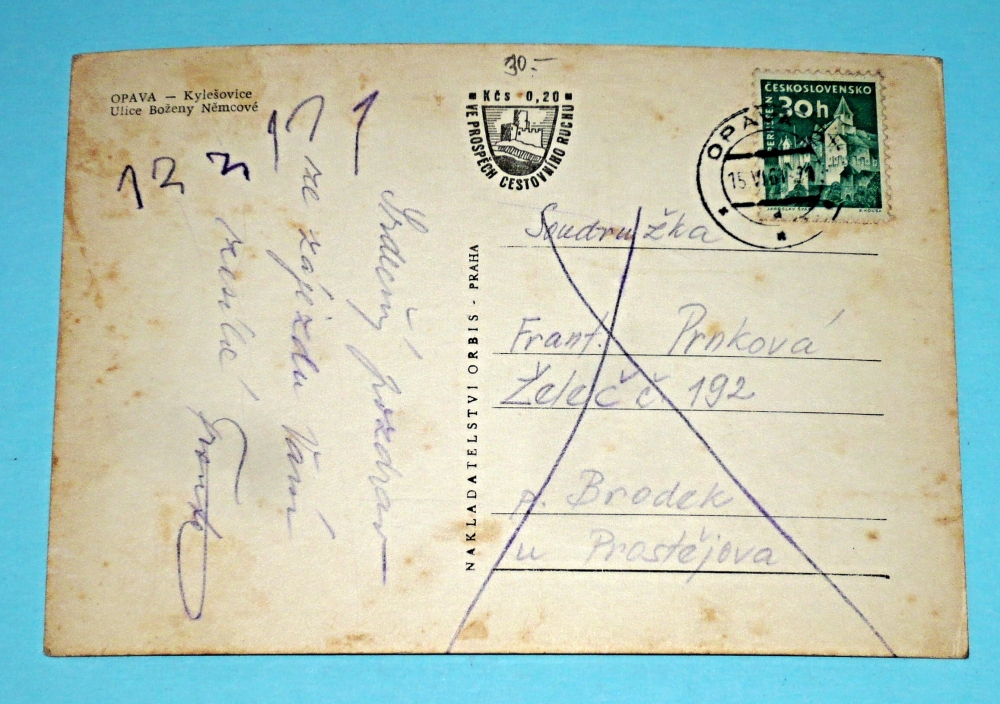 30.-
OPAVA — Kylešovice
Ulice Boženy Němcové
Kčs 0,20
VE PROSPĚCH CESTOVNÍHO RUCHU
ČESKOSLOVENSKO
30h
PERNŠTEJN
OPAVA
15
Srdečný pozdrav
ze zájezdu Vám
NAKLADATELSTVÍ ORBIS - PRAHA
Soudružka
Frant. Prnková
Želeč č 192
p. Brodek
u Prostějova